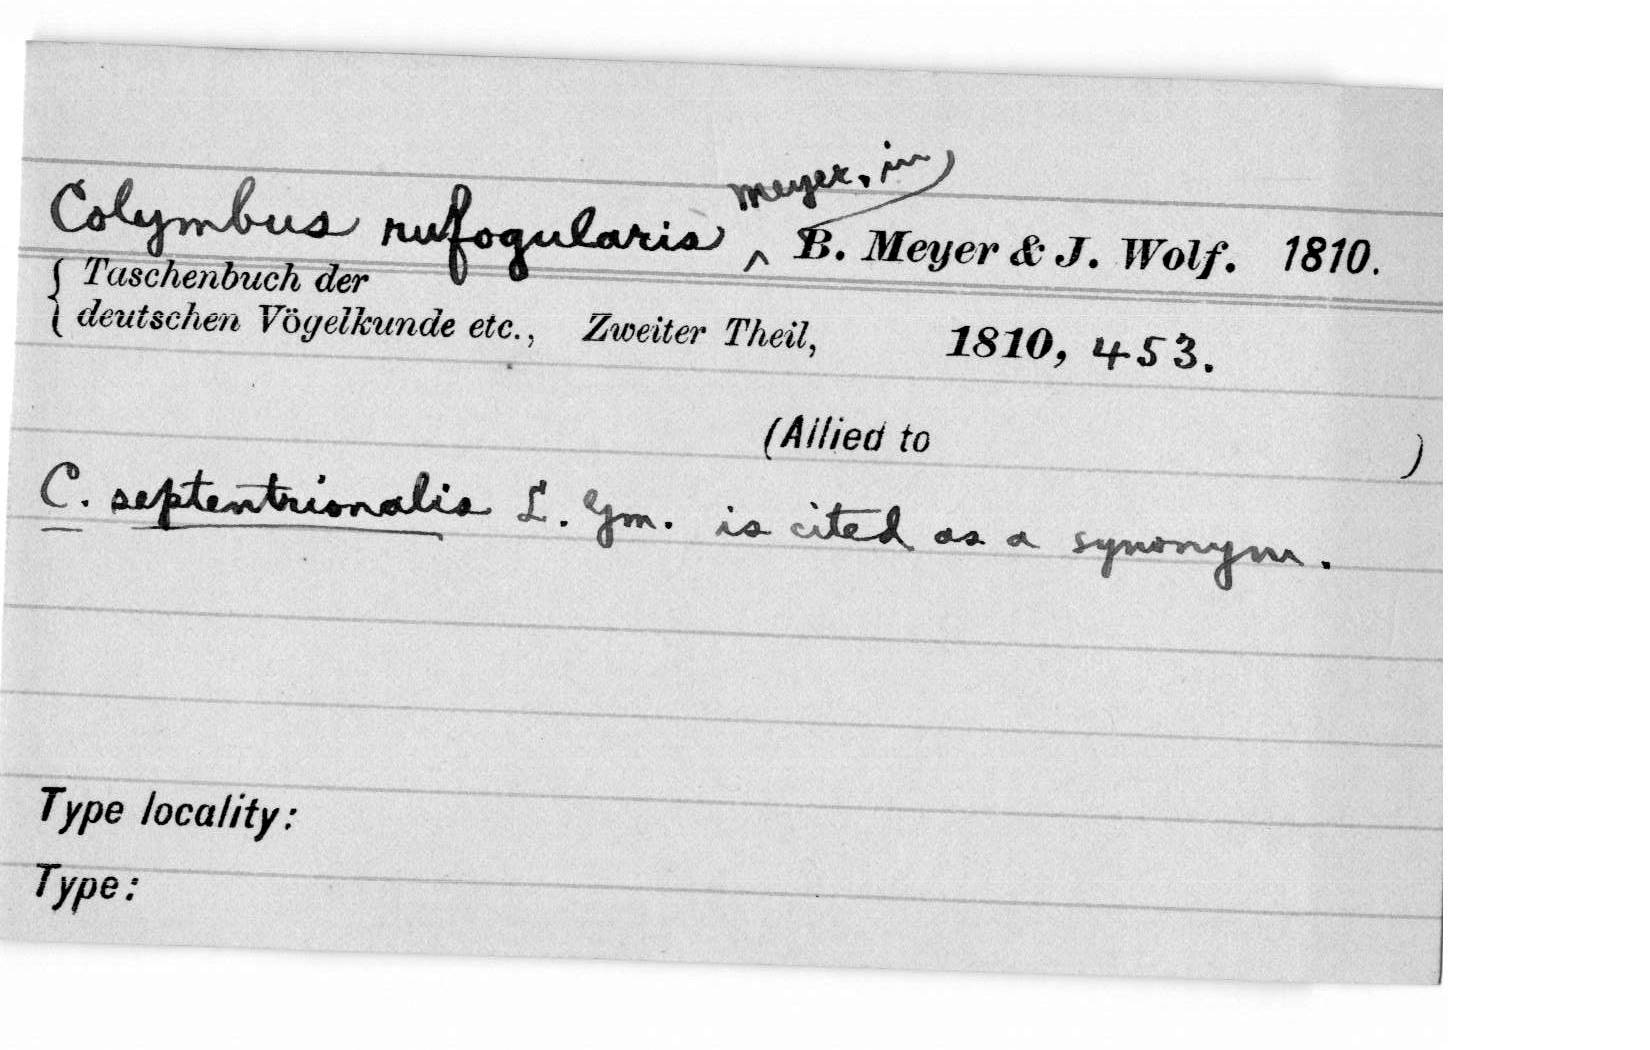 Meyer, in
Colymbus rufogularis ^ B. Meyer & J. Wolf. 1810.
{ Taschenbuch der
deutschen Vögelkunde etc., Zweiter Theil, 1810, 453.
(Allied to )
C. septentrionalis L. Gm. is cited as a synonym.
Type locality:
Type: